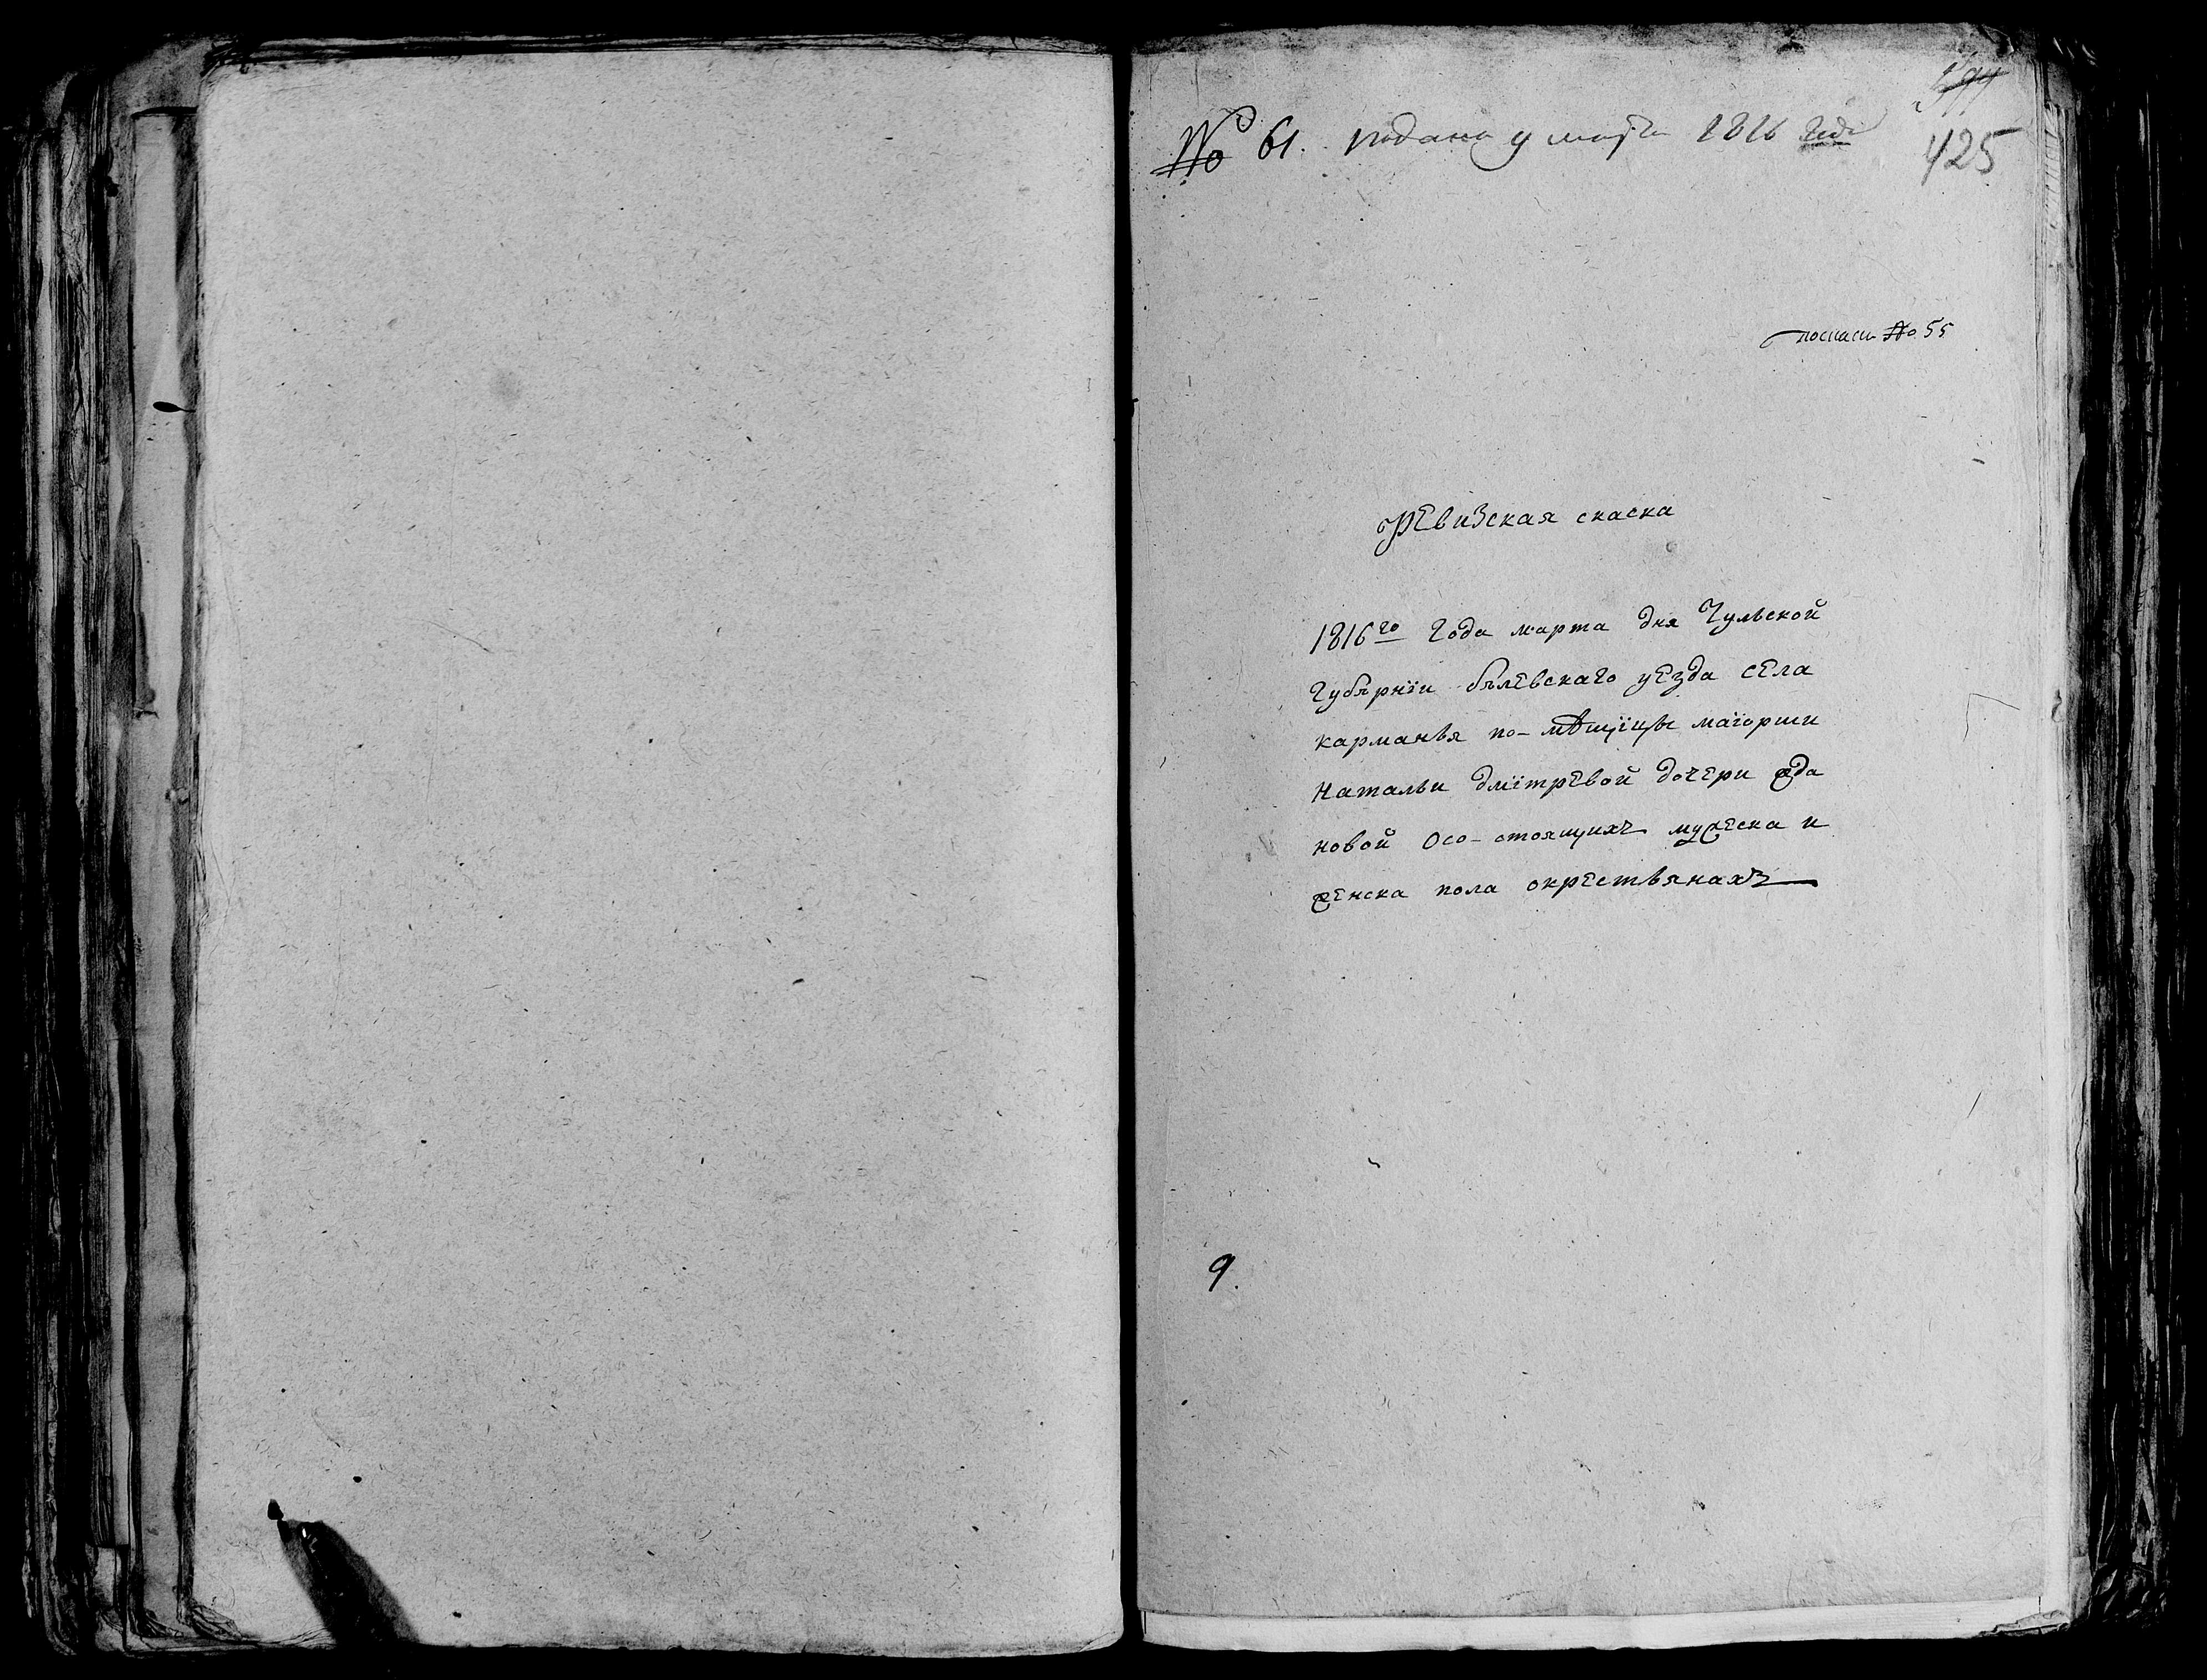 № 61. подана 9 марта 1816 года
425
№ 55
Ревизская скаска
1816го Года марта дня Тульской
Губѣрнїи бѣлевскаго уезда села
карманья по-мѣщїицы маїорши
Натальи дмїтревой дочери жда
новой Осо-стоящихъ мужеска и
женска пола окрествянахъ
9.